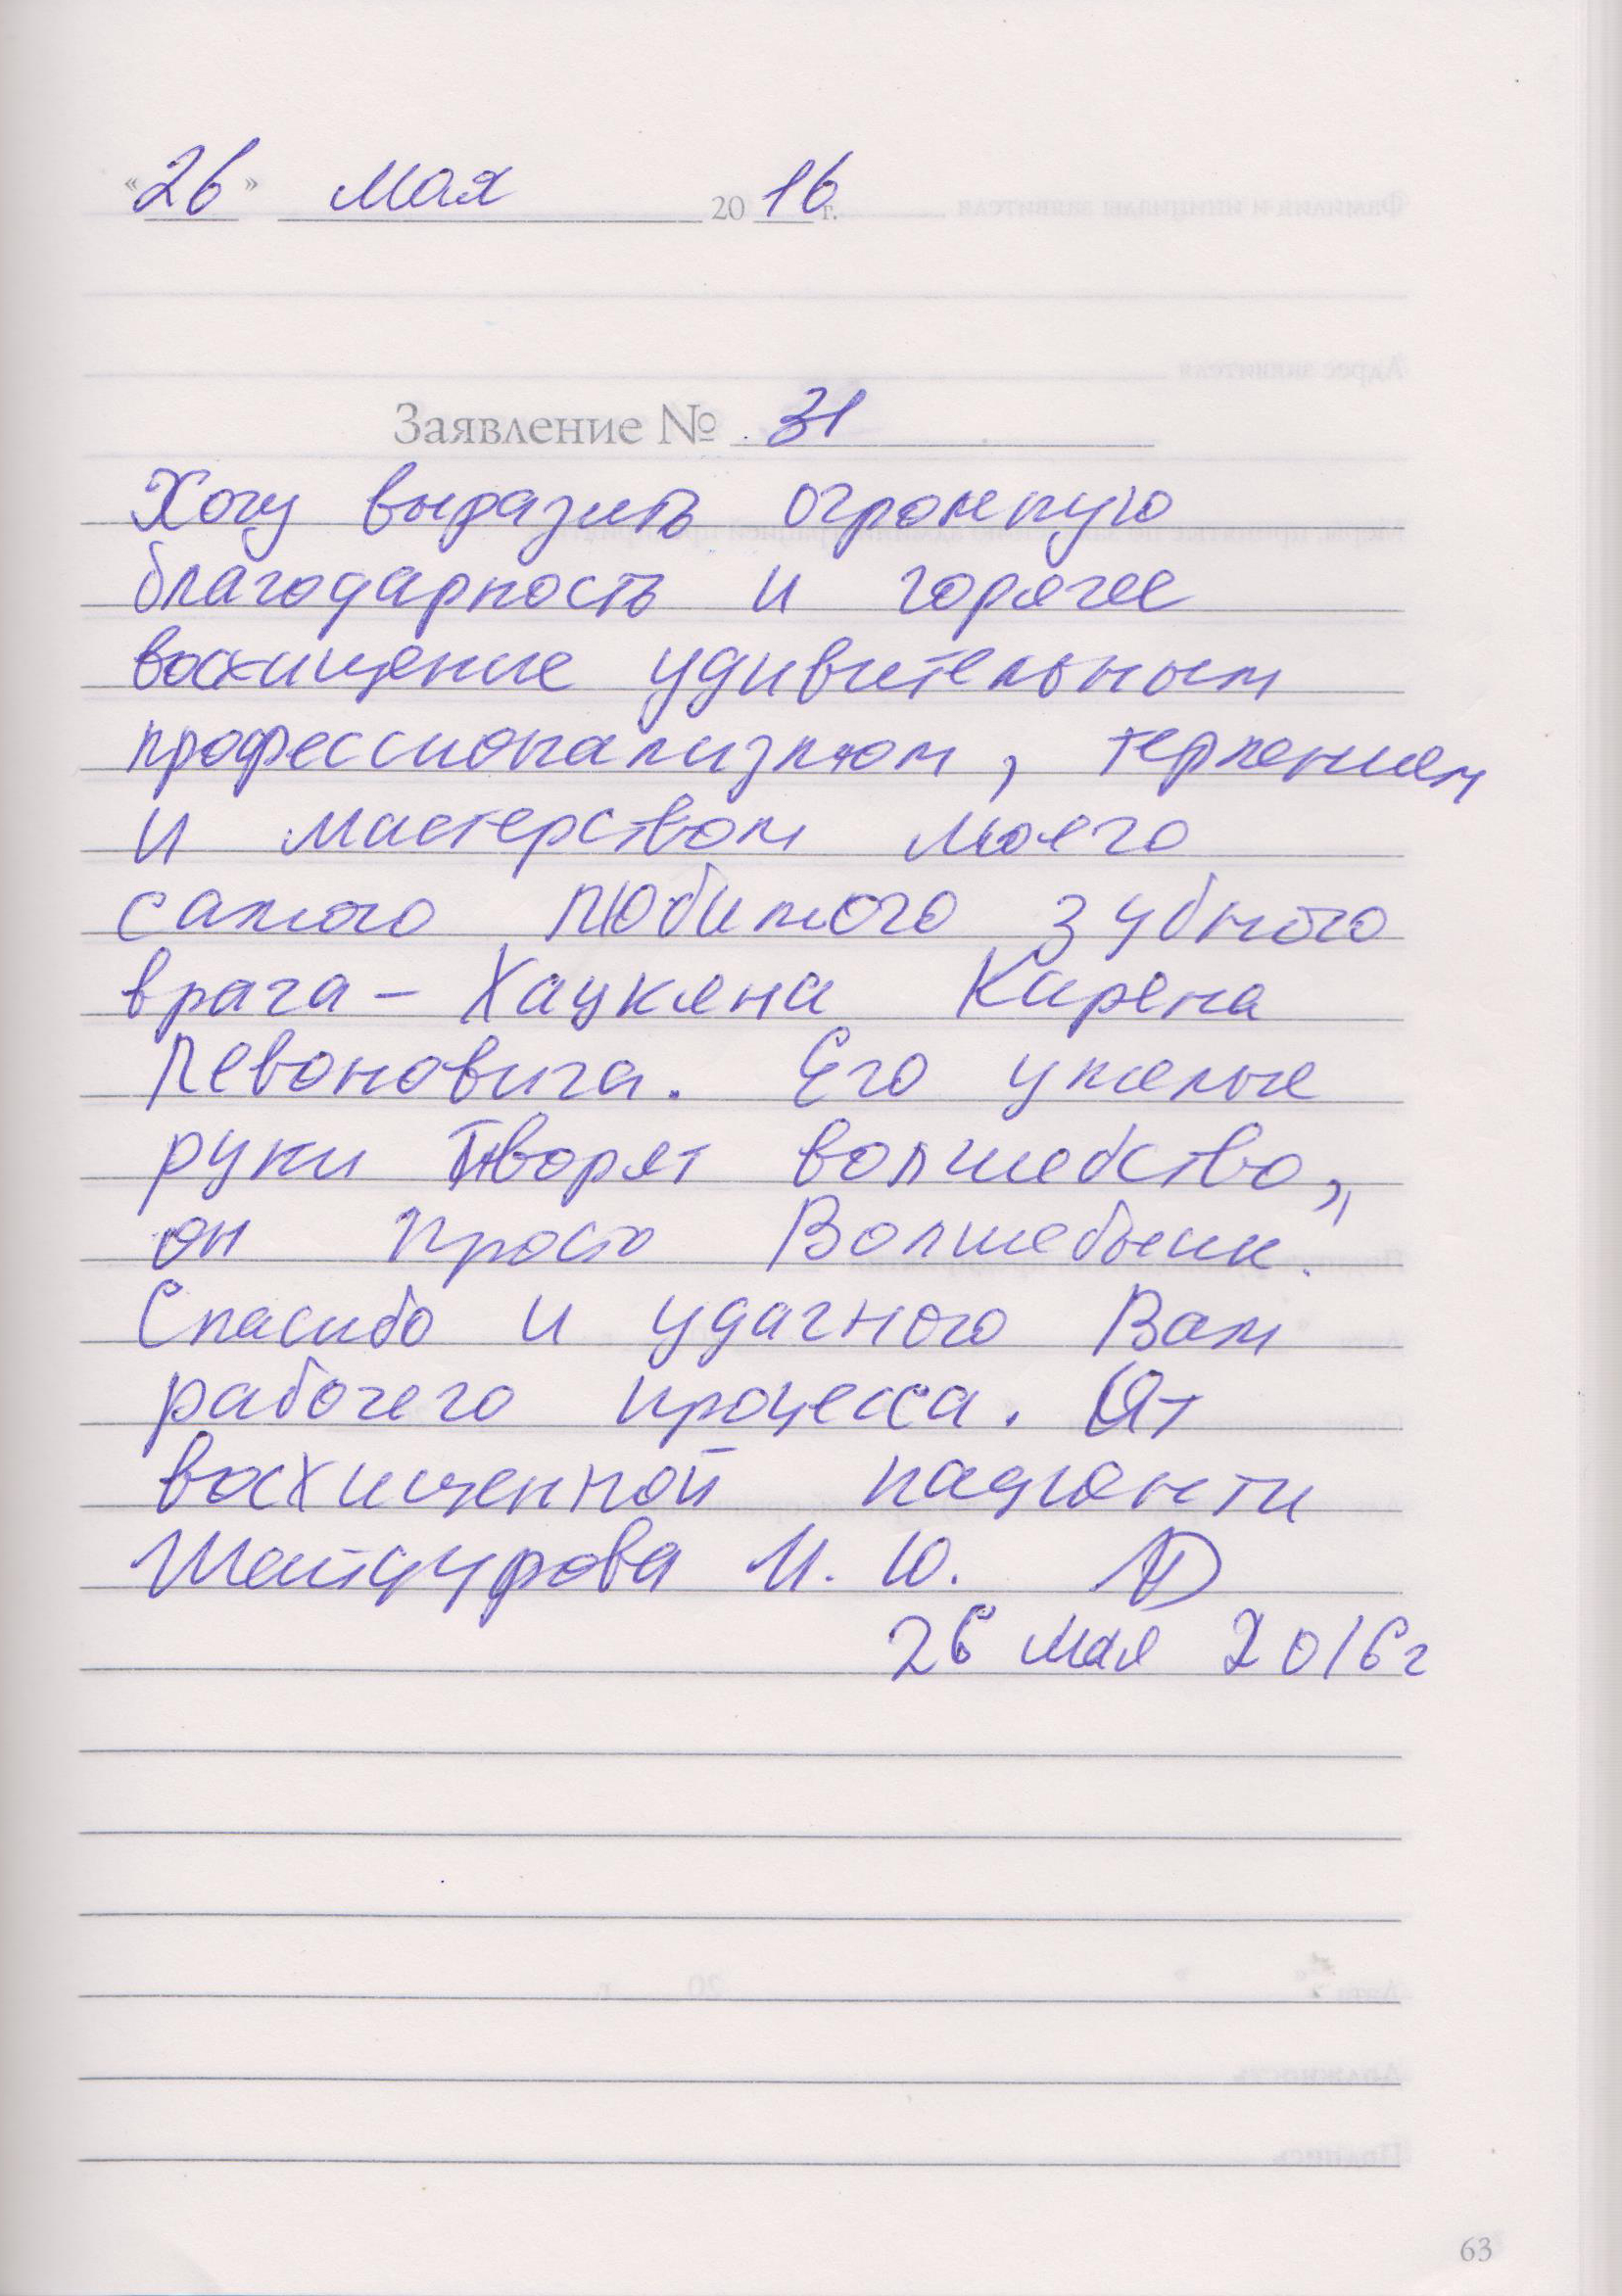 «26» мая 2016 г.
Заявление № 31
Хочу выразить огромную
благодарность и горячее
восхищение удивительным
профессионализмом, терпением
и мастерством моего
самого любимого зубного
врача – Хаукяна Карена
Левоновича. Его умелые
руки творят волшебство,
он просто Волшебник.
Спасибо и удачного Вам
рабочего процесса. От
восхищенной пациентки
Шайдурова И. Ю.
26 мая 2016 г
63